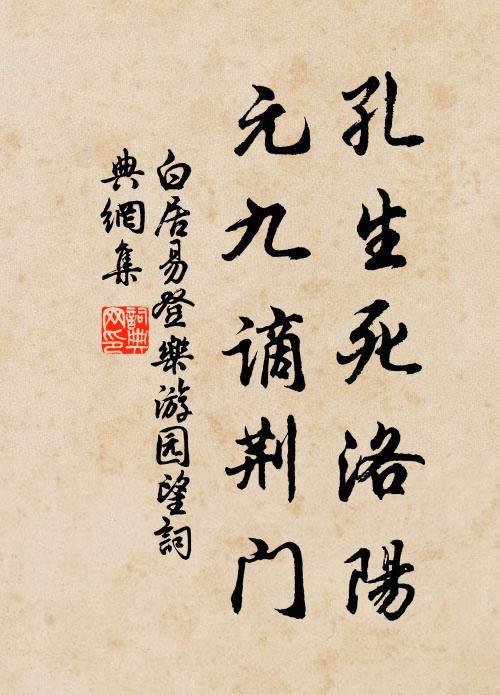 孔生死洛陽
元九谪荆门
白居易登樂游园望詞
典網集
詞典
网印